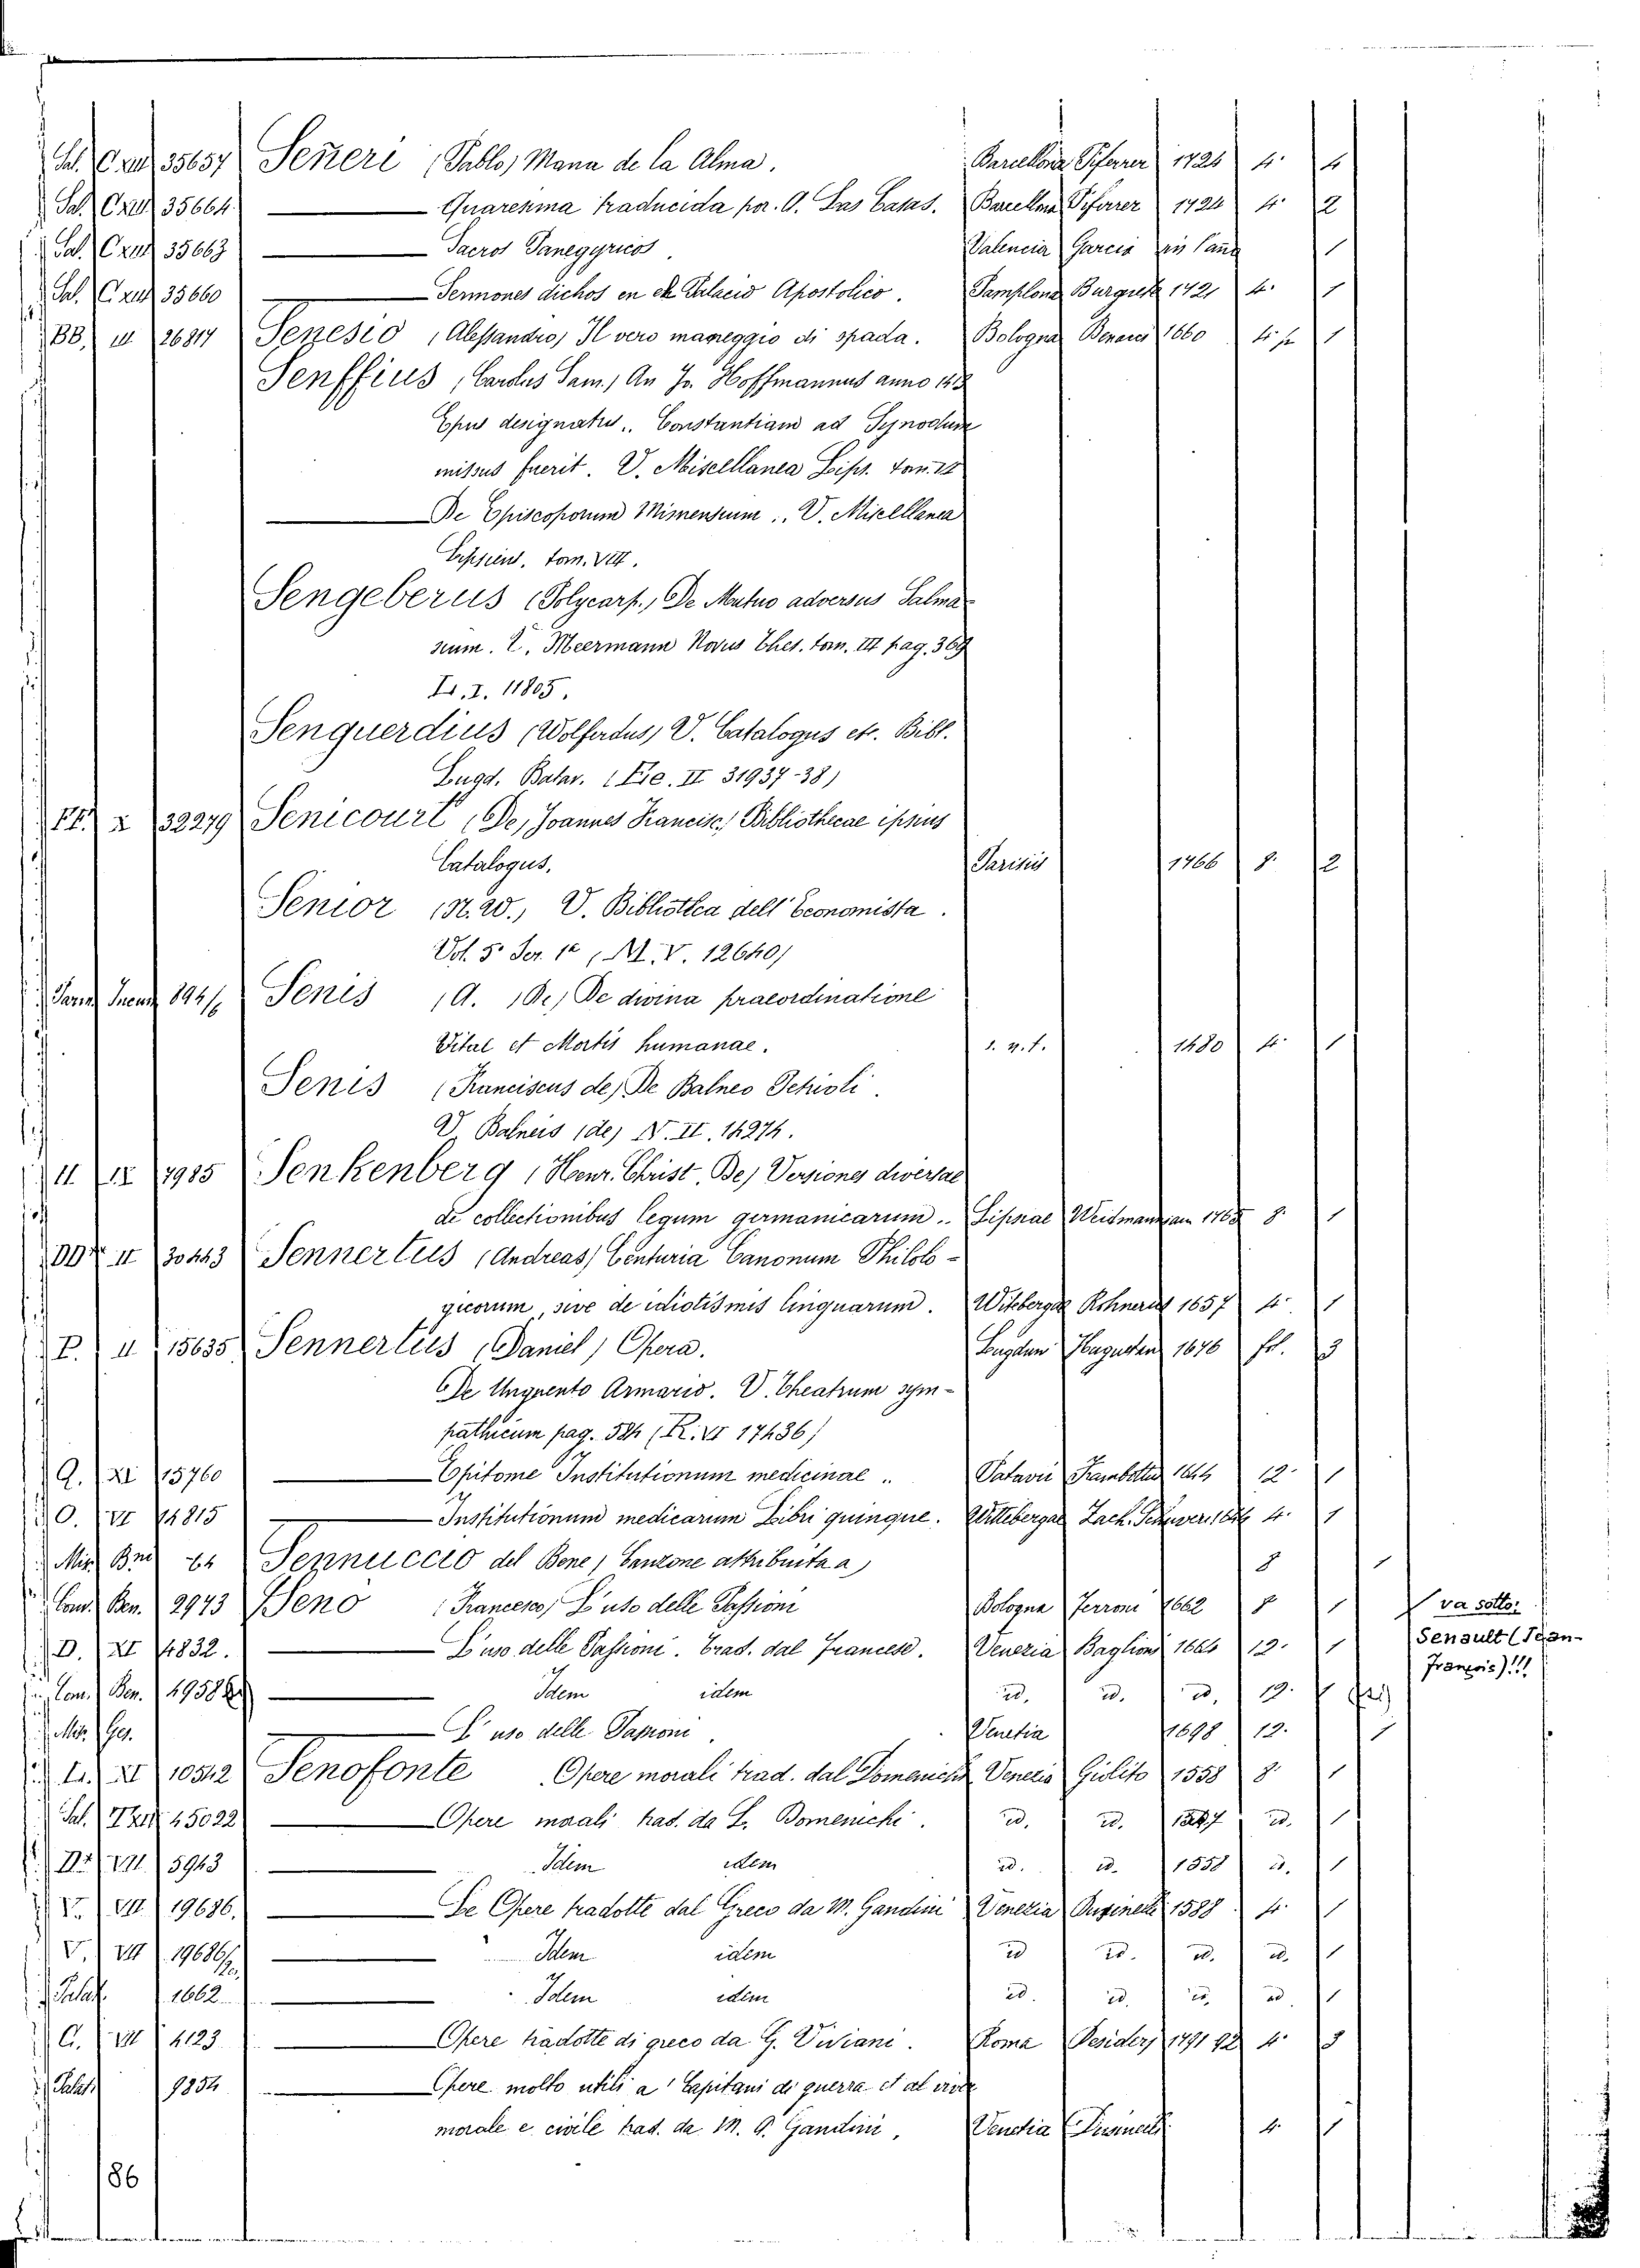 Sal. Cxxx 35657 Señeri (Pablo) Mana de la Alma. Barcellona Piferrer 1724 4. 4
Sal. Cxxx 35664 — Quaresma traducida por. A. Las Casas. Barcellona Piferrer 1724 4. 2
Sal. Cxxx 35663 — Sacros Panegyricos. Valencia Garcia 1
Sal. Cxxx 35660 — Sermones dichos en el Palacio Apostolico. Pamplona Burguete 1721 4. 1
BB. III 26817 Senesio (Alessandro) Il vero maneggio di spada. Bologna Benacci 1660 1
Senffius (Carolus Sam.) An Jo. Hoffmannus anno
Epus designatus.. Constantiam ad Synodum
missus fuerit. V. Miscellanea Lips. tom.
— De Episcoporum Mimensium .. V. Miscellanea
Lipsiens. tom. VIII.
Sengeberus (Polycarp.) De Mutuo adversus Salma-
sium. V. Meermann Novus Thes. tom. III pag. 369
I. 11805.
Senguerdius (Wolferdus) V. Catalogus etc. Bibl.
Lugd. Batav. (Ee. II 31937-38)
X 32279 Senicourt (De, Joannes Francisc.) Bibliothecae ipsius
Catalogus. Parisiis 1766 8. 2
Senior (N. W.) V. Bibliotca dell' Economista.
Vol. 5° Ser. 1ª (M. V. 12640)
894/6 Senis (A. De) De divina praeordinatione
Vitae et Mortis humanae. s. n. t. 1480 4. 1
Senis (Franciscus de) De Balneo Petrioli.
V. Balneis (de) N. II. 14274.
II IX 7985 Senkenberg (Henr. Christ. De) Versiones diversae
de collectionibus legum germanicarum.. Lipsiae Weidmanniam 1765 8. 1
DD. II 30443 Sennertus (Andreas) Centuria Canonum Philolo-
gicorum, sive de idiotismis linguarum. Witeberge Rohnerus 1657 4. 1
P. II 15635 Sennertus (Daniel) Opera. Lugduni Huguetan 1676 fol. 3
De Unguento Armario. V. Theatrum sym-
pathicum pag. 524 (R. VI 17436)
Q. XI 15760 — Epitome Institutionum medicinae .. Patavii Frambottus 1644 12. 1
O. VI 14815 — Institutionum medicarum Libri quinque. Wittebergae Zach. 4. 1
Sennuccio del Bene, Canzone attribuita a 8 1
Com. Ben. 2973 Seno (Francesco) L'uso delle Passioni Bologna Ferroni 1662 8 1 va sotto:
D. XI 4832. — L'uso delle Passioni. Trad. dal Francese. Venezia Baglioni 12. 1 Senault (Jean-
Com. Ben. 4958 — Idem idem id. id. id. 12. François)!!!
— L'uso delle Passioni. Venetia 1698 12. 1
XI 10542 Senofonte Opere morali trad. dal Domenichi Venezia Giolito 1558 8. 1
Sal. 45022 — Opere morali trad. da L. Domenichi. id. id. 1547 id. 1
VII. 5943 — Idem idem id. id. 1558 id. 1
V. VII. 19686. — Le Opere tradotte dal Greco da M. Gandini Venezia Dusinelli 1588 4. 1
V. VII 19686/ — Idem idem id id. id. id. 1
Palat. 1662 — Idem idem id. id. id. id 1
C. VIII 4123 — Opere tradotte di greco da G. Viviani. Roma Desiderj 1791 92 4. 3
Palat. 9854 — Opere molto utili a' Capitani di guerra et al viver
morale e civile trad. da M. A. Gandini, Venetia Dusinelli 4. 1
186